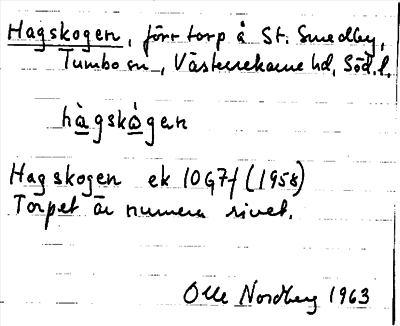 Hagskogen, förr torp å St. Smedby,
Tumbo sn, Västerrekarne hd, Söd. l.
hàgskògen
Hagskogen ek 10G7f (1958)
Torpet är numera rivet.
Olle Nordberg 1963